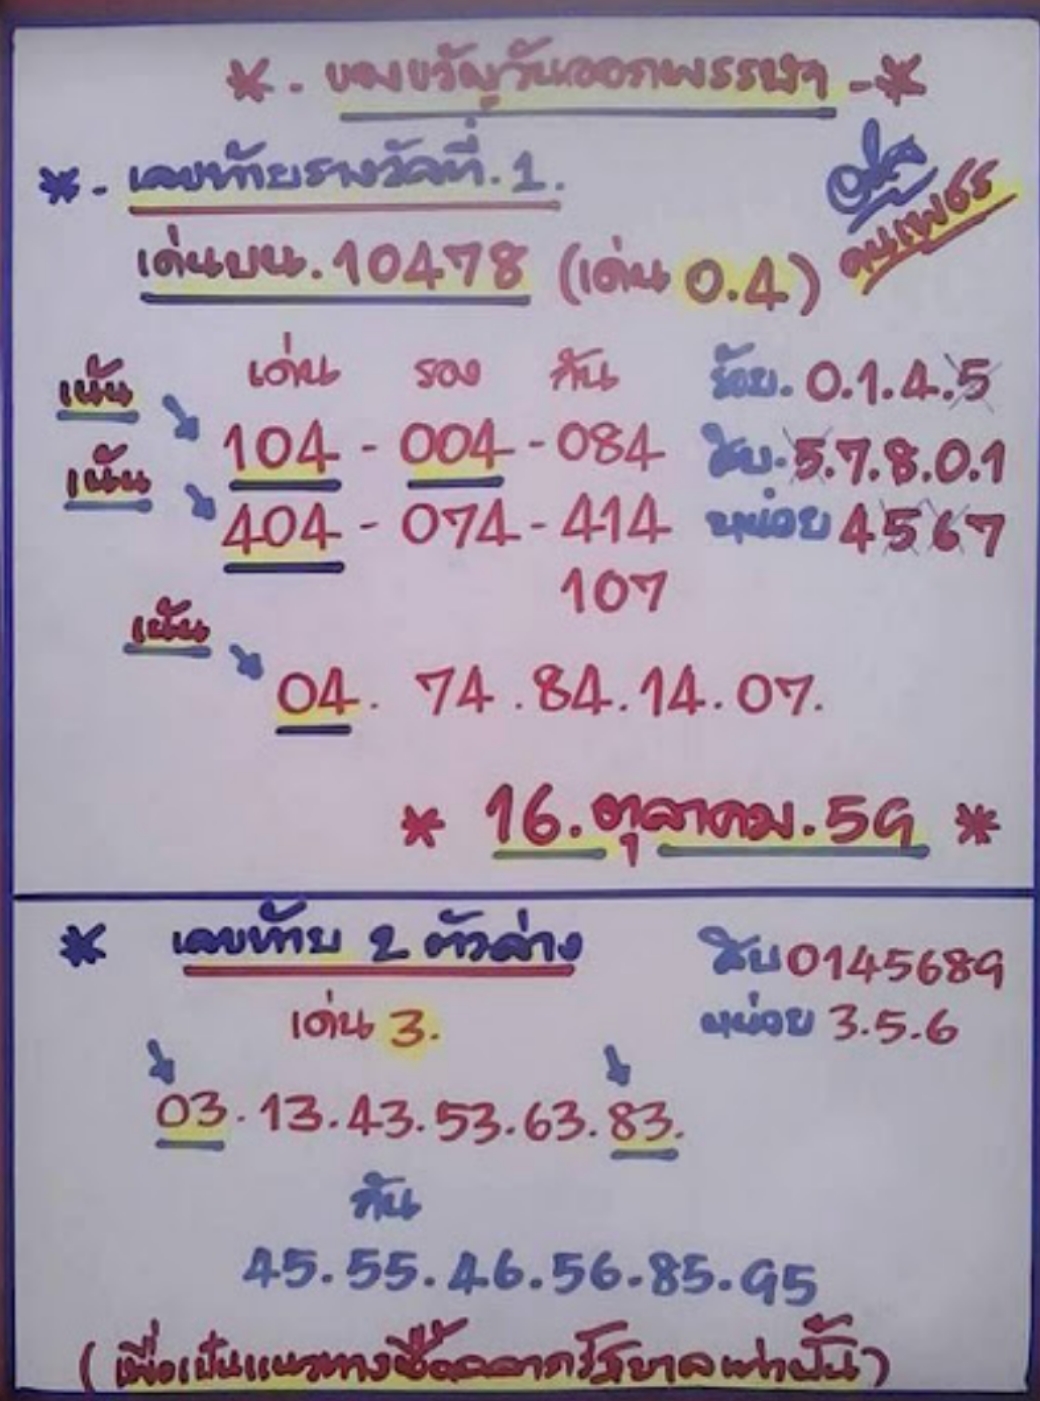 * - ของขวัญวันออกพรรษา - *
* - เลขท้ายรางวัลที่.1.
คนเพชร
เด่นบน.10478 (เด่น 0.4)
เด่น รอง กัน
ร้อย. 0.1.4.5
เน้น 104 - 004 - 084
สิบ. 5.7.8.0.1
เน้น 404 - 074 - 414
หน่วย 4567
107
เน้น
04. 74.84.14.07.
* 16.ตุลาคม.59 *
* เลขท้าย 2 ตัวล่าง
สิบ 0145689
เด่น 3.
หน่วย 3.5.6
03.13.43.53.63.83.
กัน
45.55.46.56.85.95
(เพื่อเป็นแนวทางซื้อสลากรัฐบาลเท่านั้น)